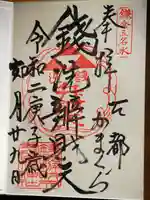 鎌倉五名水
奉拝
古都
かまくら
銭洗辨財天
令和二庚子歳
月廿九日